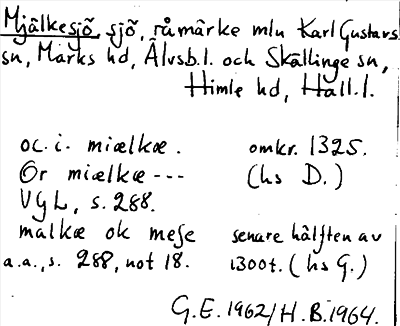 Mjälkesjö, sjö, råmärke mln Karl Gustavs
sn, Marks hd, Älvsb.l. och Skällinge sn,
Himle hd, Hall.l.
oc. i. miælkæ. omkr. 1325.
Or miælkæ --- (hs D.)
VgL, s. 288.
malkæ ok mese senare hälften av
a.a., s. 288, not 18. 1300t. (hs G.)
G.E. 1962/H.B. 1964.